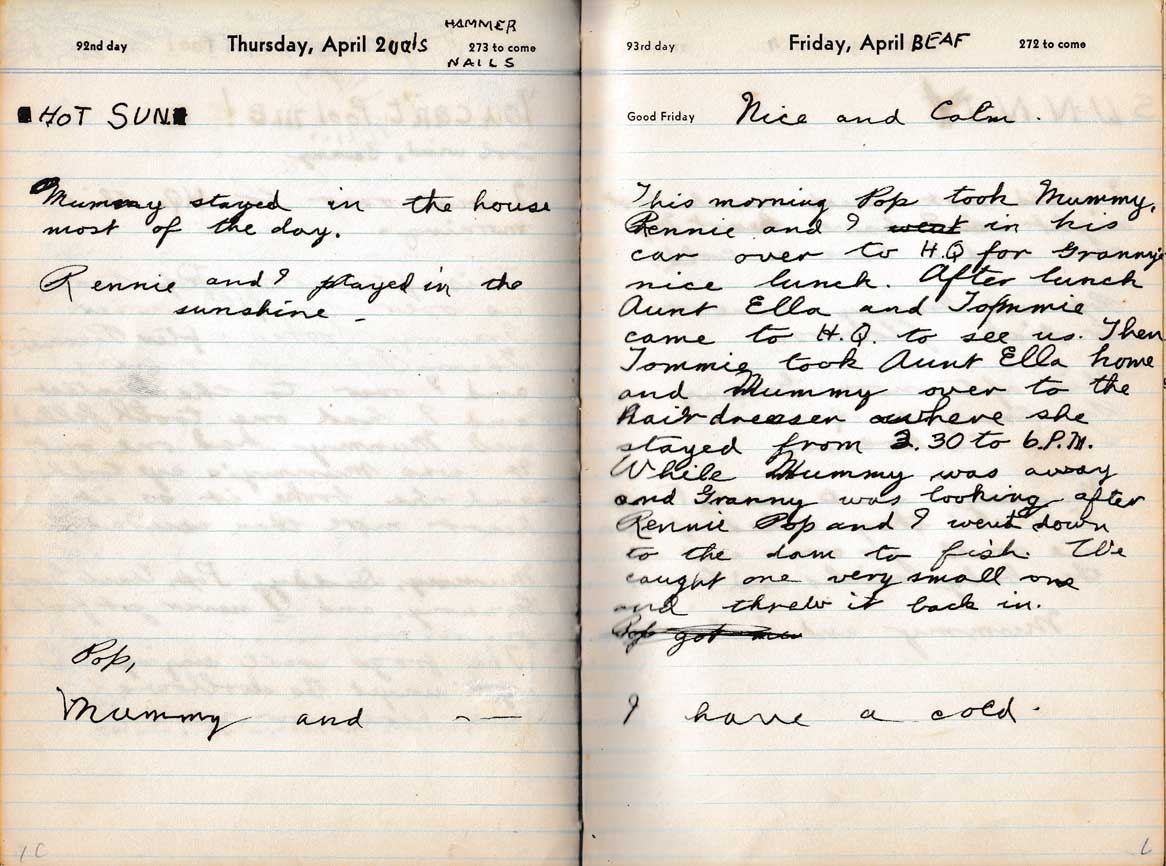 HAMMER
92nd day Thursday, April 2 273 to come
NAILS
HOT SUN
Mummy stayed in the house
most of the day.
Rennie and I played in the
sunshine -
Pop,
Mummy and - —
1C
93rd day Friday, April BEAF 272 to come
Good Friday Nice and Calm.
This morning Pop took Mummy,
Rennie and I went in his
car over to H.Q for Granny's
nice lunch. After lunch
Aunt Ella and Tommie
came to H.Q. to see us. Then
Tommie took Aunt Ella home
and Mummy over to the
hair dresser where she
stayed from 2.30 to 6.P.M.
While Mummy was away
and Granny was looking after
Rennie Pop and I went down
to the dam to fish. We
caught one very small one
and threw it back in.
Pop got me
I have a cold.
6